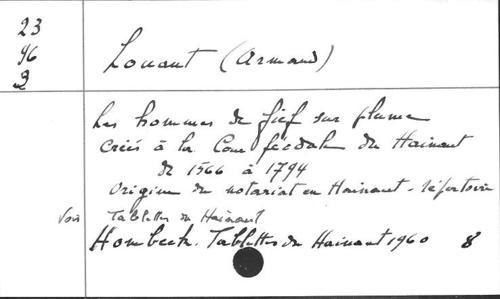 23
96
2
Louant (Armand)
Les hommes de fief sur plume
créés à la Cour féodale du Hainaut
de 1566 à 1794
Origine du notariat en Hainaut - répertoire
Voir Tablettes du Hainaut
Hombeek. Tablettes du Hainaut 1960 8